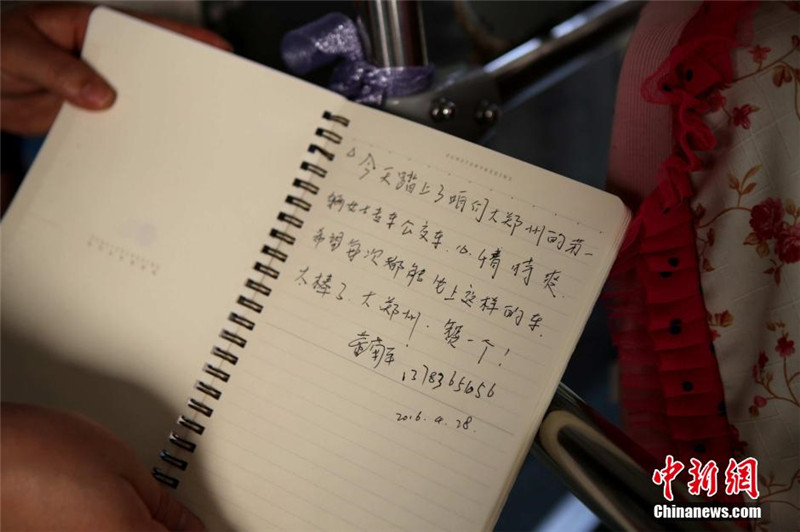 今天猎上了咱们大郑州的第一
辆女士专车公交车.心情特爽.
希望每次都能坐上这样的车.
太棒了.大郑州.赞一个!
2016.4.28.
中新网
Chinanews.com